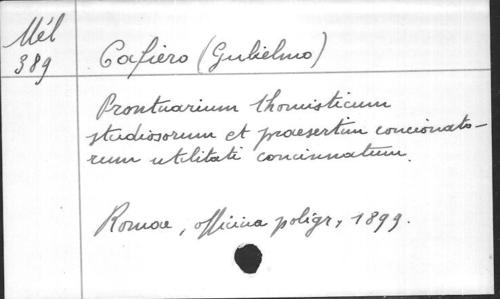 Mél
389
Cafiero (Gulielmo)
Prontuarium thomisticum
studiosorum et praesertim concionato-
rum utilitati concinnatum.
Romae, officina poligr, 1899.